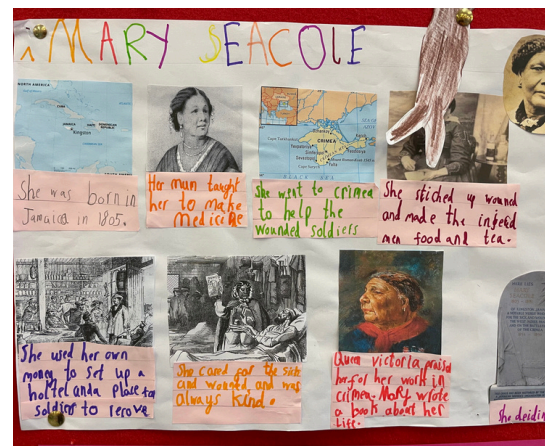 MARY SEACOLE
NORTH AMERICA
CUBA
JAMAICA
HAITI
DOMINICAN
REPUBLIC
Kingston
She was born in
Jamaica in 1805.
Her mum taught
her to make
medicine
CRIMEA
BLACK SEA
She went to crimea
to help the
wounded soldiers
She stiched up wound
and made the injered
men food and tea.
She used her own
money to set up a
holtel and a place for
soldiers to recove
She cared for the sick
and wounded and was
always kind.
Queen victoria praised
her for her work in
crimea. Mary wrote
a book about her
life.
She deidin